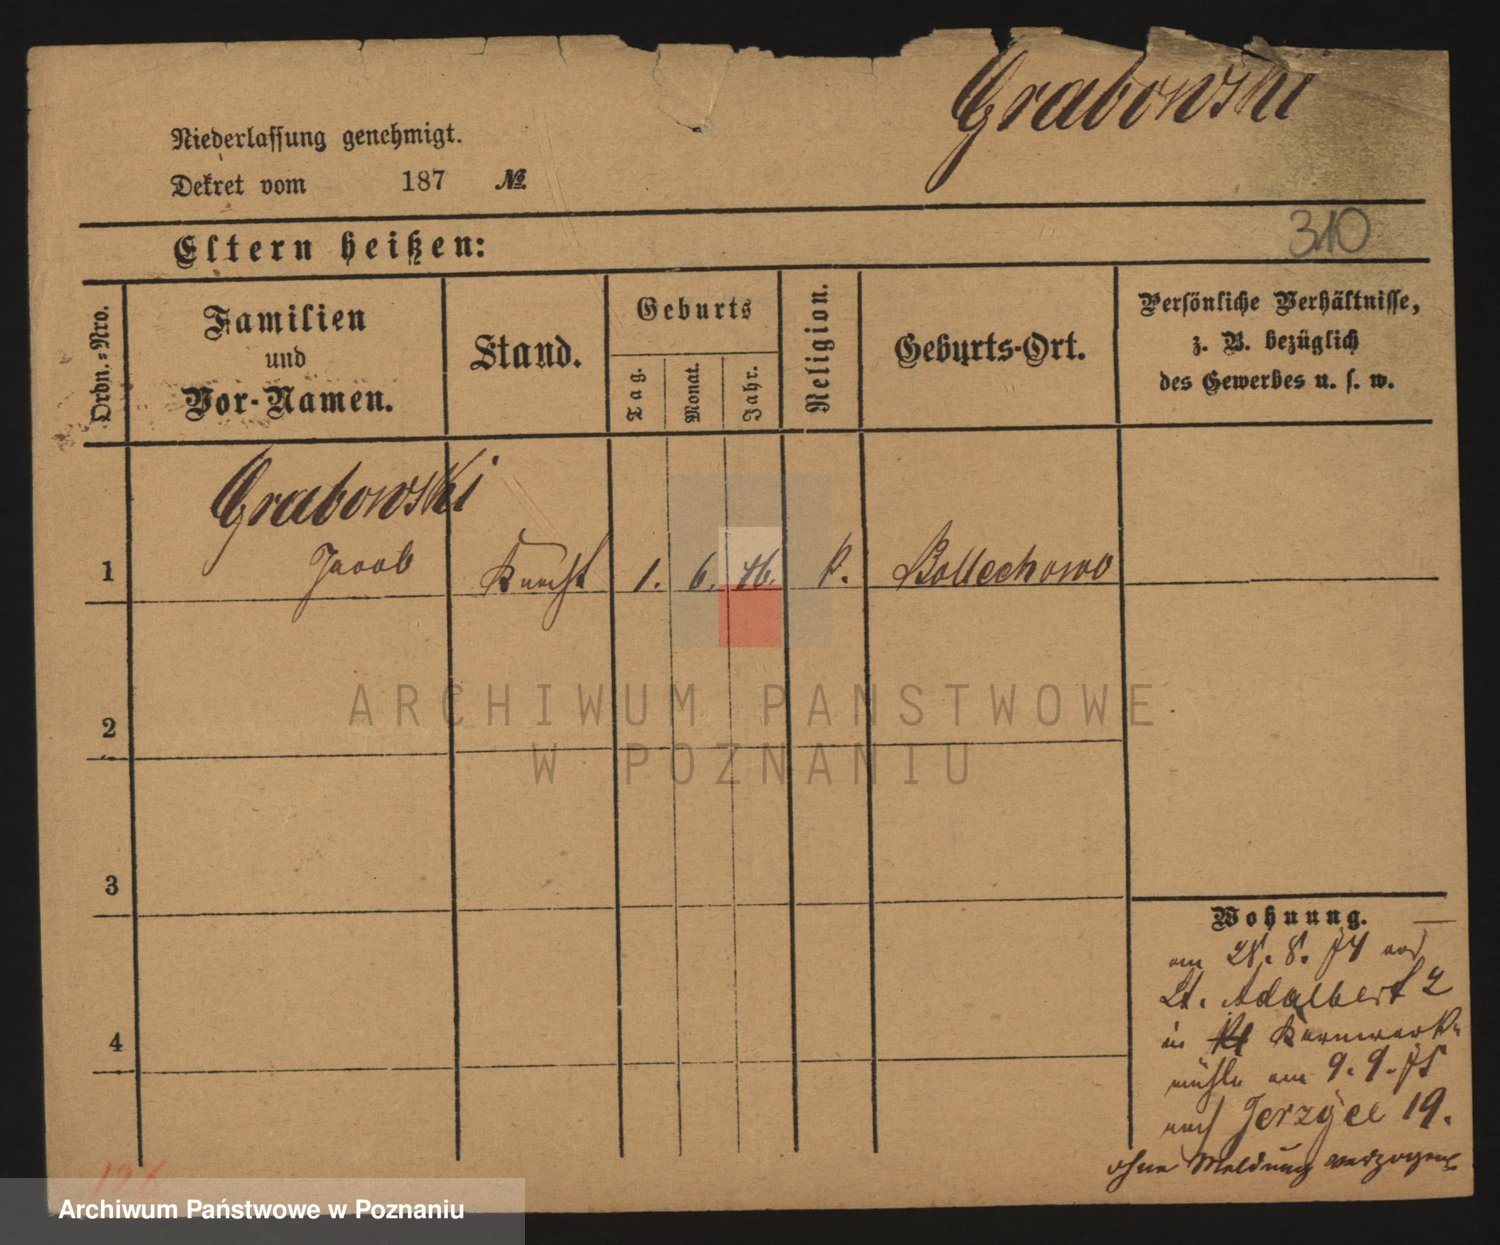 Grabowski
Niederlassung genehmigt.
Dekret vom 187 №
310
Eltern heißen:
Ordn.-Nro.
Familien
und
Vor-Namen.
Stand.
Geburts
Tag.
Monat.
Jahr.
Religion.
Geburts-Ort.
Persönliche Verhältnisse,
z. B. bezüglich
des Gewerbes u. s. w.
Grabowski
1 Jacob Knecht 1. 6. 46. k. Bollechowo
2
3
4
Wohnung.
am 28. 8. 74 nach
St. Adalbert 2
in Kernwerk
mühle am 9. 9. 75
nach Jerzyce 19.
ohne Meldung verzogen
ARCHIWUM PAŃSTWOWE
W POZNANIU
Archiwum Państwowe w Poznaniu